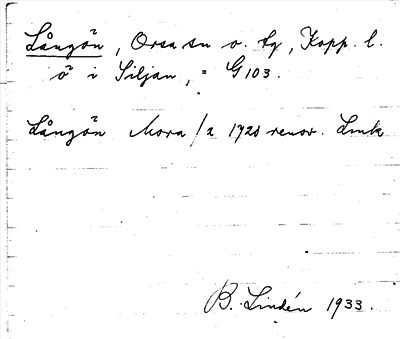 Långön, Orsa sn o. tg, Kopp. l.
ö i Siljan, = G 103.
Långön Mora/2 1720 renov. Lmk
B. Lindén 1933.